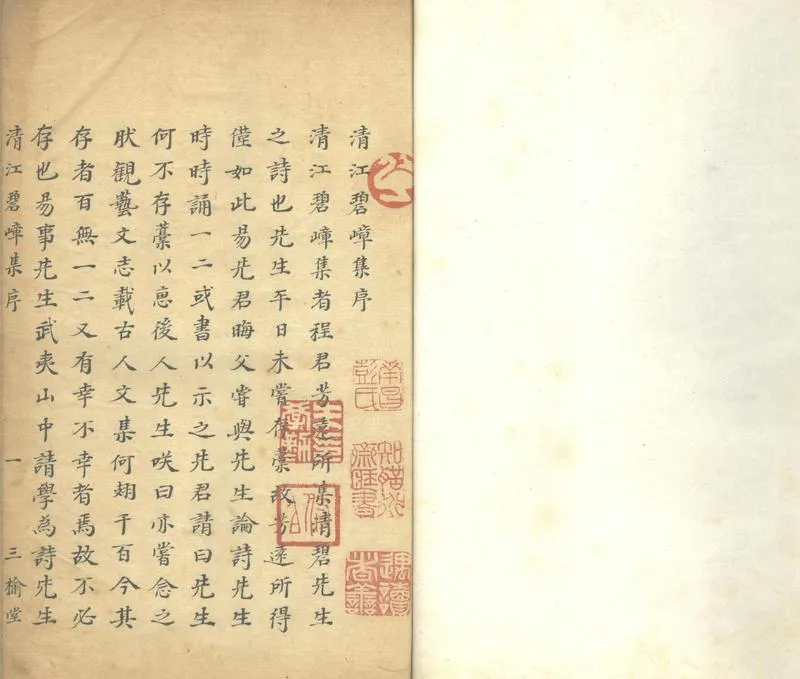 清江碧嶂集序
清江碧嶂集者程君芳遠所集清碧先生
之詩也先生平日未嘗存藁故芳遠所得
僅如此易先君晦父嘗與先生論詩先生
時時誦一二或書以示之先君請曰先生
何不存藁以惠後人先生咲曰亦嘗念之
肰觀藝文志載古人文集何翅千百今其
存者百無一二又有幸不幸者焉故不必
存也易事先生武夷山中請學為詩先生
清江碧嶂集序 一 三榆堂
南昌彭氏
知聖道齋藏書
遇讀者善